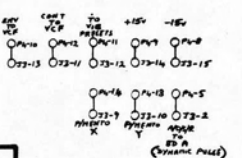 ENV TO VCF
CONT TO VCF
TO VIB PRESETS
+15V
-15V
P4-10
P4-12
P4-11
P4-9
P4-8
J3-13
J3-11
J3-12
J3-14
J3-15
P4-14
P4-13
P4-5
J3-9
J3-10
J3-2
P/MENTO X
P/MENTO Y
TO
BD A
(DYNAMIC PULSE)